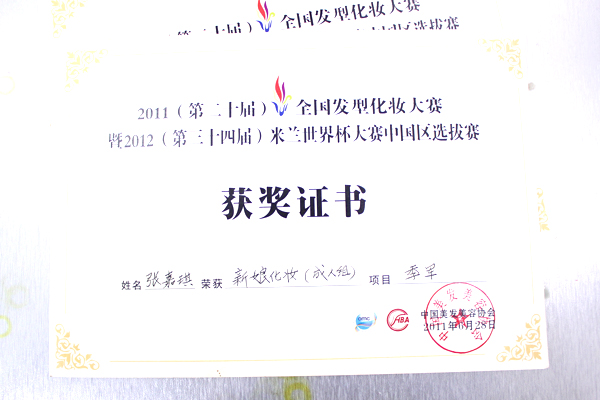 全国发型化妆大赛
2011（第二十届）全国发型化妆大赛
暨2012（第三十四届）米兰世界杯大赛中国区选拔赛
获奖证书
姓名 张嘉琪 荣获 新娘化妆（成人组） 项目 季军
HBA
中国美发美容协会
2011年6月28日